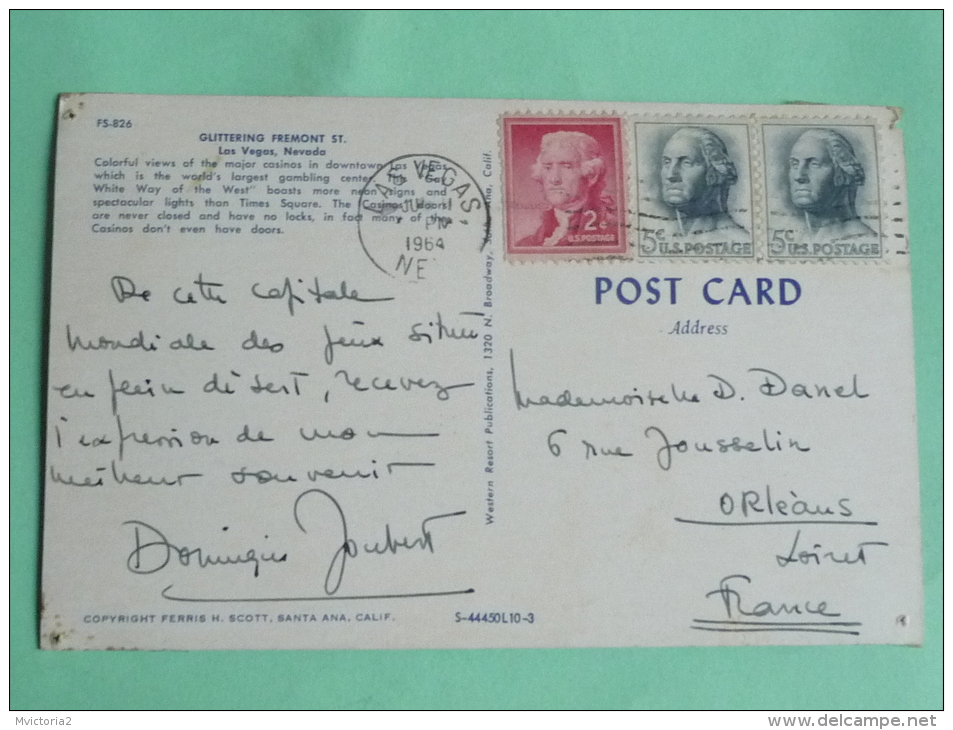 FS-826
GLITTERING FREMONT ST.
Las Vegas, Nevada
Colorful views of the major casinos in downtown Las Vegas
which is the world's largest gambling center. This "Gay
White Way of the West" boasts more neon signs and
spectacular lights than Times Square. The Casinos' doors
are never closed and have no locks, in fact many of the
Casinos don't even have doors.
LAS VEGAS,
PM
1964
NEV
2¢
U.S. POSTAGE
5¢
U.S. POSTAGE
5¢
U.S. POSTAGE
De cette capitale
mondiale des jeux située
en plein désert, recevez
l'expression de mon
meilleur souvenir
Dominique Joubert
COPYRIGHT FERRIS H. SCOTT, SANTA ANA, CALIF.
S-44450L10-3
Western Resort Publications, 1320 N. Broadway, Santa Ana, Calif.
POST CARD
Address
Mademoiselle D. Danel
6 rue Jousselin
ORLéANS
Loiret
France
Mvictoria2
delcampe.net